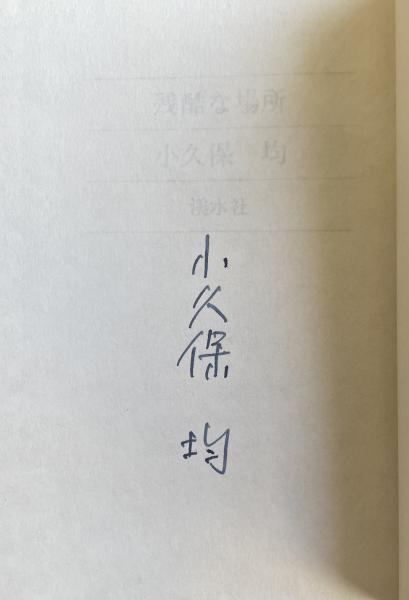 残酷な場所
小久保 均
溪水社
小久保 均